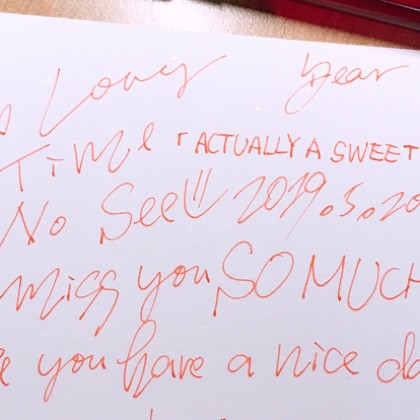 Long year
Time 「ACTUALLY A SWEET
No See!! 2019.5.20
miss you SO MUCH
you have a nice da